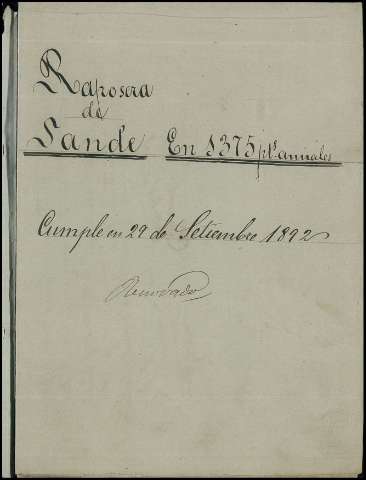 Raposera
de
Sande En 1375 pts. anuales
Cumple en 29 de Setiembre 1892
Renovado